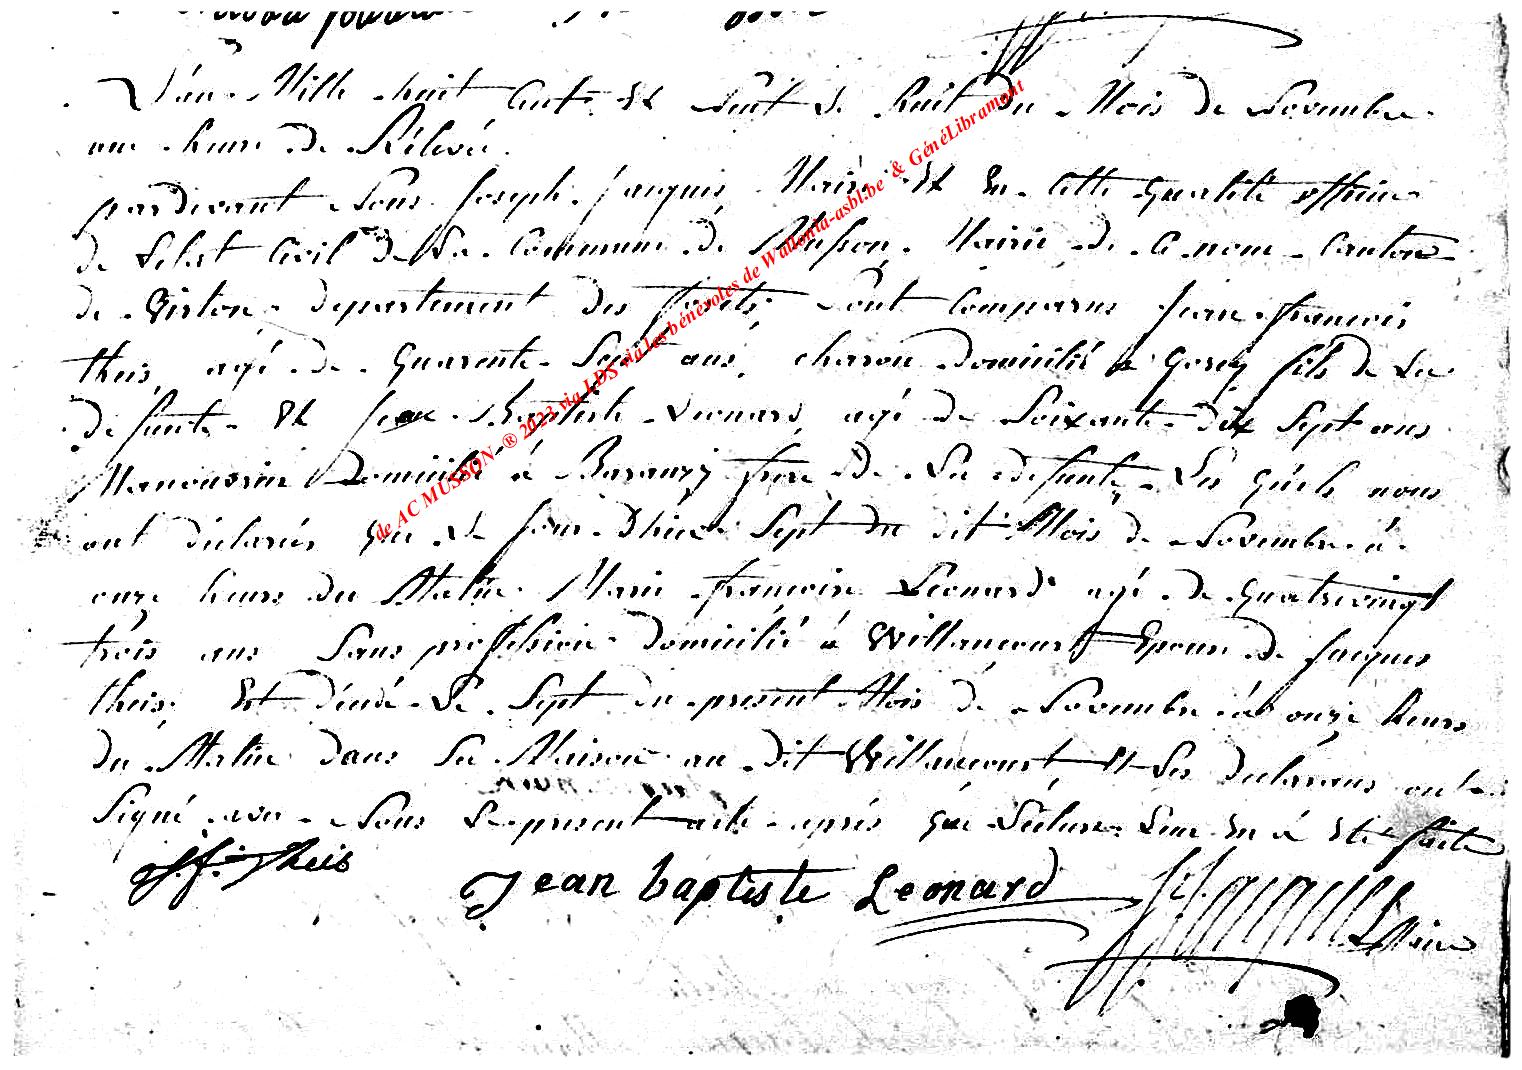 L'an Mille huit Cent Et huit Le huit Du Mois de Novembre
une heure de Rélevé.
pardevant Nous Joseph Jacques Maire Et En Cette Qualité officier
de L'état Civil de La Commune de Musson, Mairie de Ce nom, Canton
de Virton, departement des forêts, Sont Comparus Jean francois
theis, agé de Quarente Sept ans, charon domicilié a Gorcy fils de La
defunte Et Jean Baptiste Leonard, agé de Soixante dix Sept ans
Manouvrier Domicilié à Baranzy frere de La defunte, Les Quéls nous
ont déclarés Que Le Jour D'hier Sept du dit Mois de Novembre à
onze heures du Matin Marie francoise Leonard agé de Quatrevingt
trois ans Sans proffession domicilié à Willancourt Epouse de Jacques
theis, Est décédé Le Sept du present Mois de Novembre à onze heurs
du Matin dans Sa Maison au dit Willancourt, Et Les declarans ont
Signé avec Nous Le present acte après Que Lécture Leur En à Eté faite
J. f. Theis Jean baptiste Leonard J. Jacques Maire
de AC MUSSON ® 2023 via LDS via les bénévoles de Wallonia-asbl.be & GénéLibramont